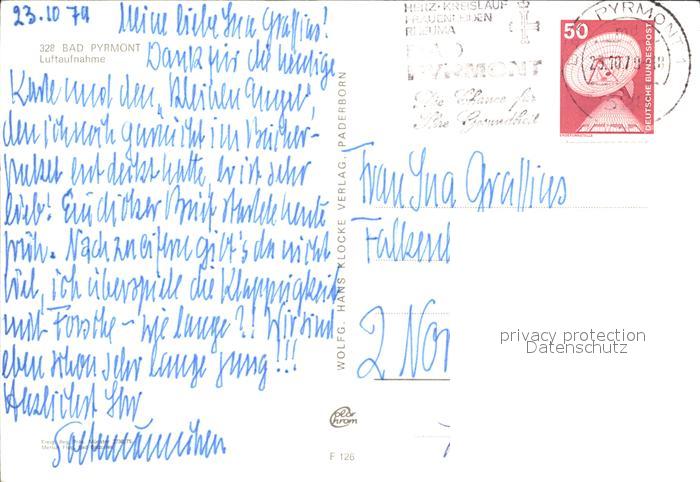 23.10 79
Meine liebe Ina Grassius!
328 BAD PYRMONT
Luftaufnahme
Dank für die heutige
Karte und den „kleinen Engel",
den ich noch gar nicht im Bücher-
paket entdeckt hatte, er ist sehr
lieb! Ein dicker Brief startete heute
früh. Nach zu eifern gibt's da nicht
viel, ich überspiele die Klapprigkeit
mit Forsche – wie lange?! Wir sind
eben schon sehr lange jung!!!
Herzlichst Ihr
F 126
WOLFG. HANS KLOCKE VERLAG, PADERBORN
color chrom
HERZ-KREISLAUF
FRAUENLEIDEN
RHEUMA
BAD
PYRMONT
Die Chance für
Ihre Gesundheit
PYRMONT 1
50
DEUTSCHE BUNDESPOST
Frau Ina Grassius
Falken
2 Nor
privacy protection
Datenschutz